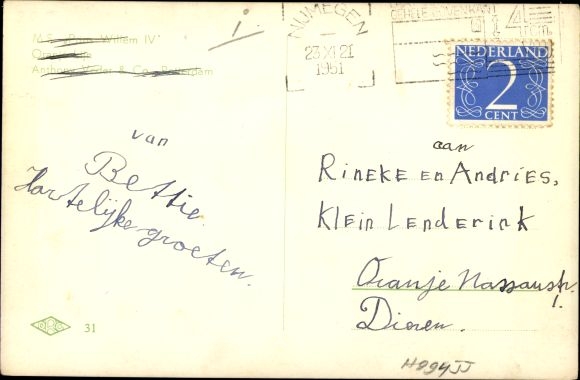 M.S. „Prins Willem IV”
Oranje Lijn
Anthony Veder & Co., Rotterdam
NIJMEGEN
23 XI 21
1951
NEDERLAND
2
CENT
van
Bettie.
Hartelijke groeten.
aan
Rineke en Andries,
Klein Lenderink
Oranje Nassaustr.
1.
Dieren.
31